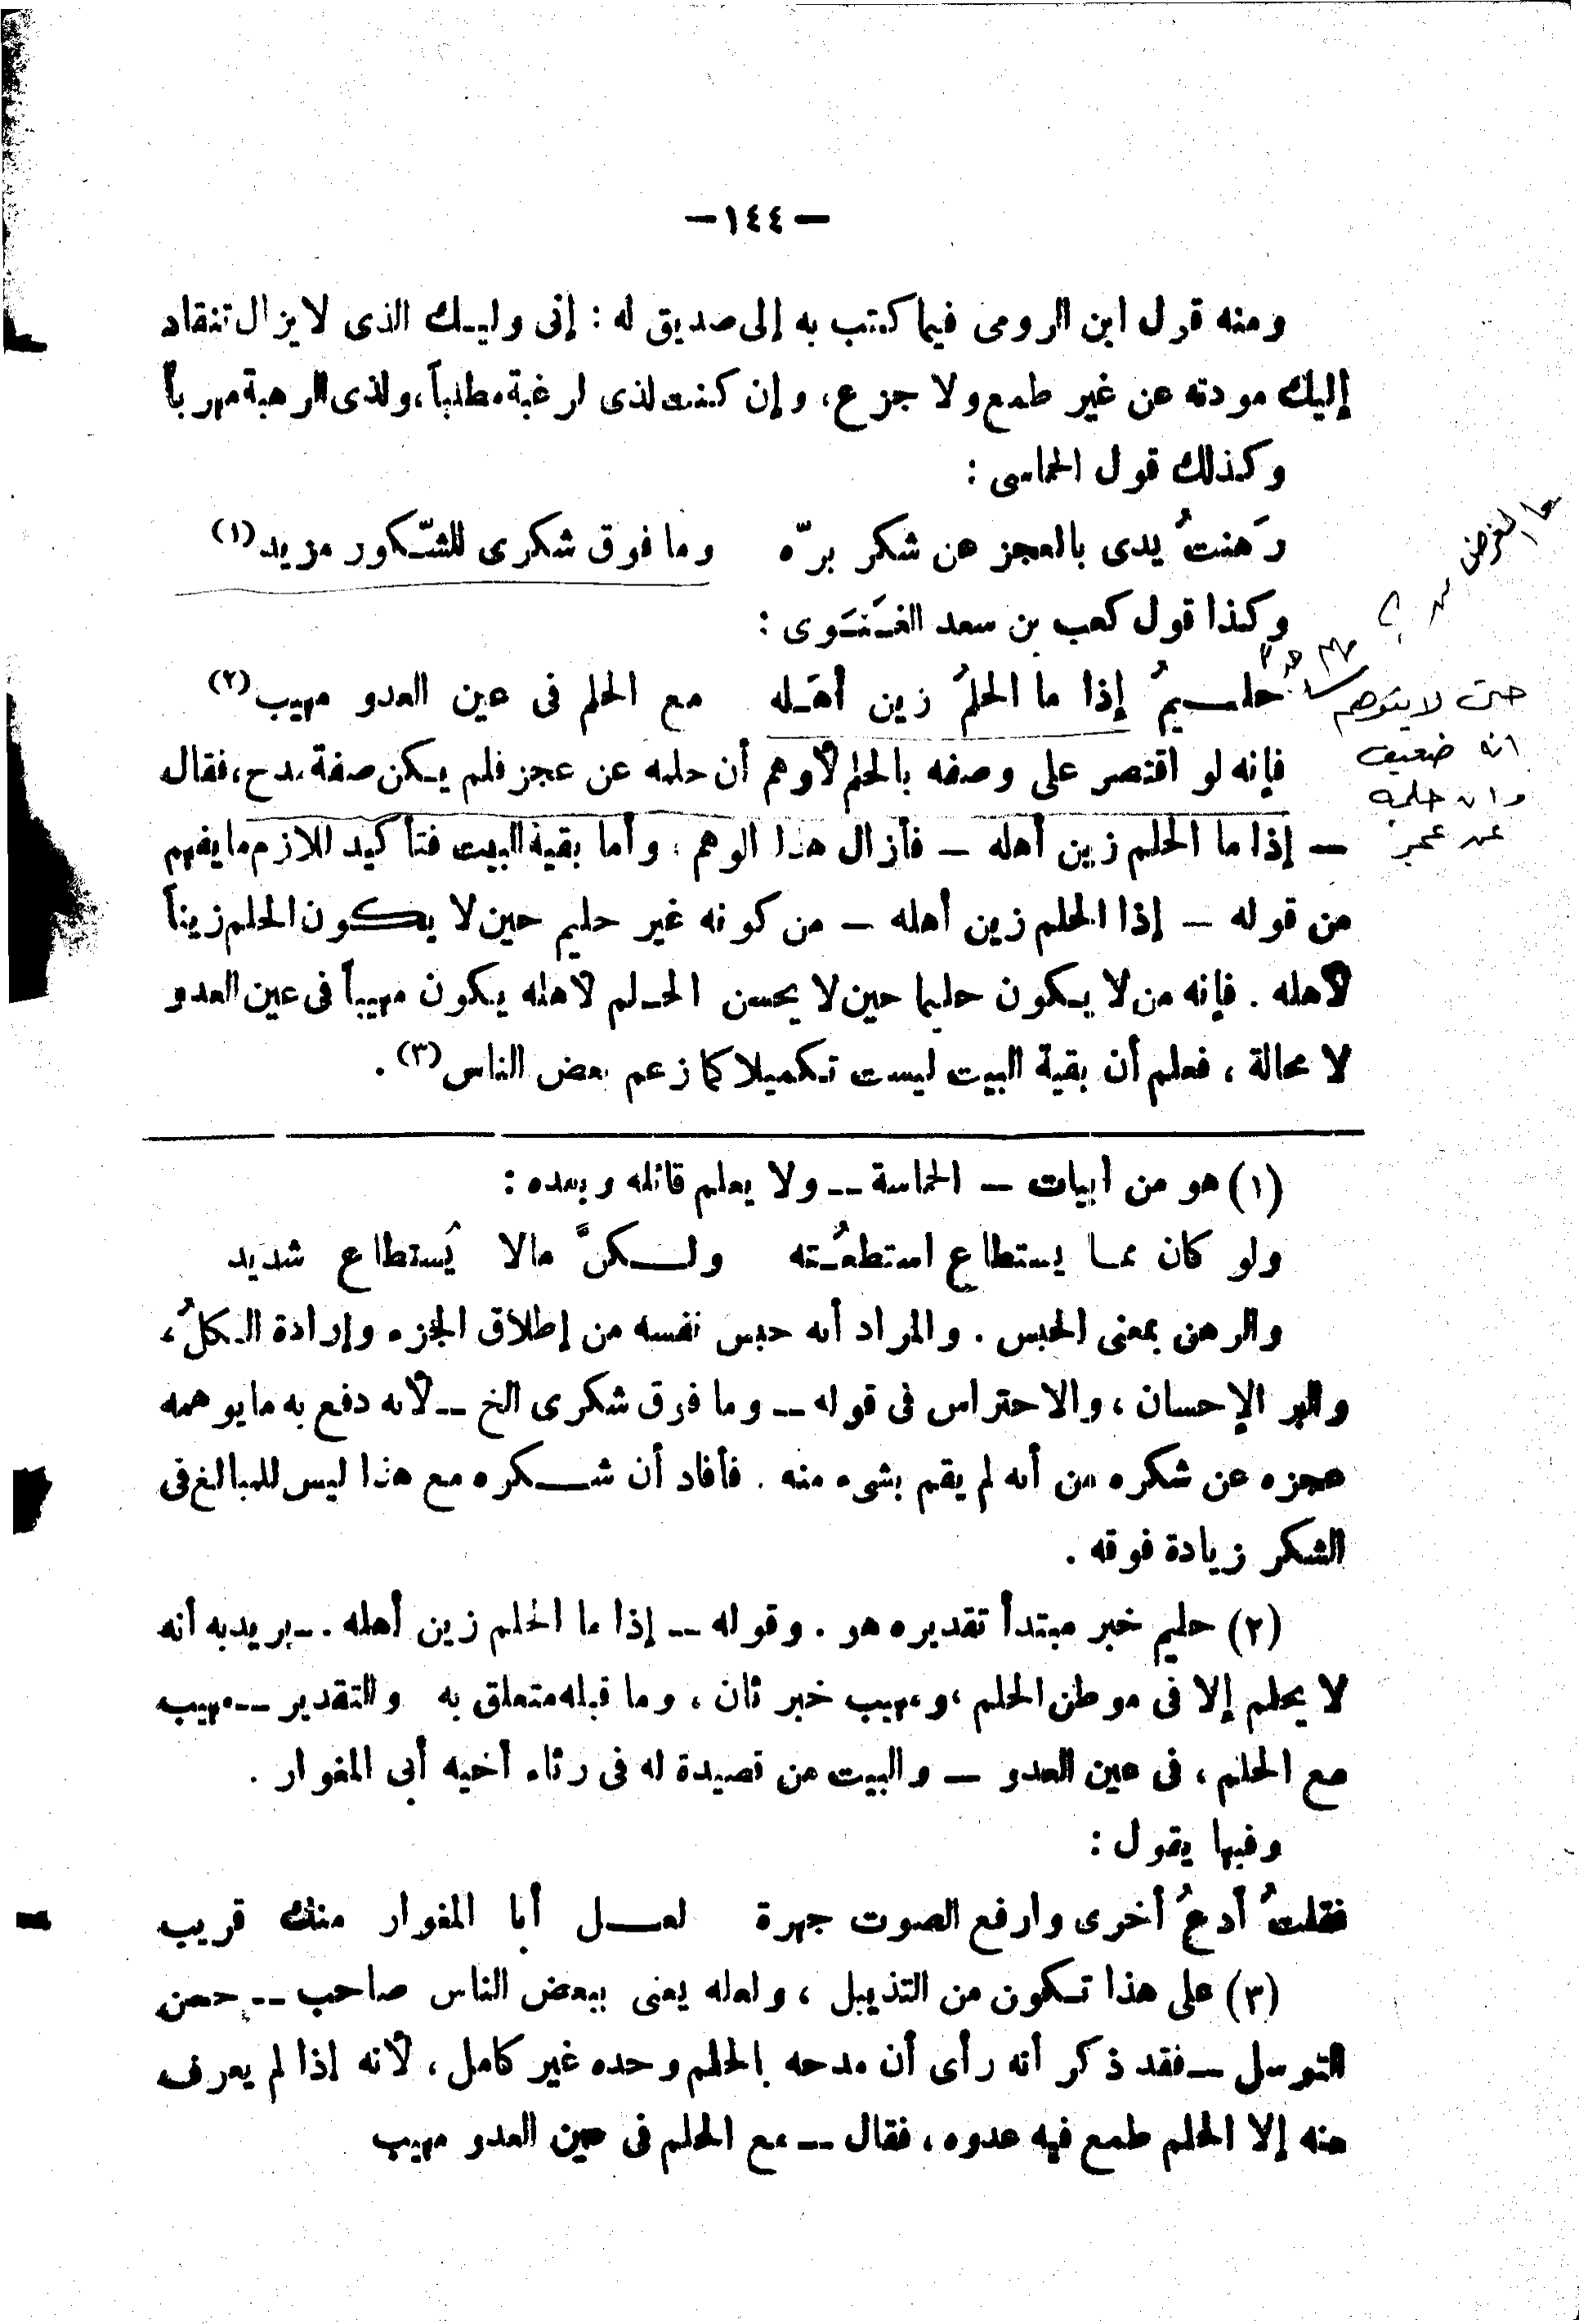 — ١٤٤ —
ومنه قول ابن الرومى فيما كتب به إلى صديق له : إنى وليـك الذى لايزال تنقاد
إليك مودته عن غير طمع ولا جزع ، وإن كنت لذى الرغبة مطلباً ، ولذى الرهبة مهرباً
وكذلك قول الحماسى :
رَهنتُ يدى بالعجز عن شكر برّه وما فوق شكرى للشّـكور مزيد (١)
وكذا قول كعب بن سعد الغَـنَـوى :
حلـــيمُ إذا ما الحلمُ زين أهَـله مع الحلم فى عين العدو مهيب (٢)
فإنه لو اقتصر على وصفه بالحلم لأوهم أن حلمه عن عجز فلم يـكن صفة مدح ، فقال
— إذا ما الحلم زين أهله — فأزال هذا الوهم ، وأما بقية البيت فتأكيد للازم ما يفهم
من قوله — إذا الحلم زين أهله — من كونه غير حليم حين لا يكون الحلم زيناً
لأهله . فإنه من لا يـكون حليما حين لا يحسن الحـلم لاهله يكون مهيباً فى عين العدو
لا محالة ، فعلم أن بقية البيت ليست تـكميلا كما زعم بعض الناس (٣) .
ما الغرض
حتى لا يتوهم
انه ضعيف
وان حلمه
عن عجز
(١) هو من أبيات — الحماسة — ولا يعلم قائله وبعده :
ولو كان مما يستطاع استطعُـته ولــكنَّ مالا يُستطاع شديد
والرهن بمعنى الحبس . والمراد أنه حبس نفسه من إطلاق الجزء وإرادة الـكلُ ،
والبر الإحسان ، والاحتراس فى قوله — وما فوق شكرى الخ — لأنه دفع به مايوهمه
عجزه عن شكره من أنه لم يقم بشىء منه . فأفاد أن شــكره مع هذا ليس للمبالغ فى
الشكر زيادة فوقه .
(٢) حليم خبر مبتدأ تقديره هو . وقوله — إذا ما الحلم زين أهله — يريد به أنه
لا يحلم إلا فى موطن الحلم ، ومهيب خبر ثان ، وما قبله متعلق به والتقدير — مهيب
مع الحلم ، فى عين العدو — والبيت من قصيدة له فى رثاء أخيه أبى المغوار .
وفيها يقول :
فقلتُ أدعُ أخرى وارفع الصوت جهرة لعــل أبا المغوار منك قريب
(٣) على هذا تـكون من التذييل ، ولعله يعنى ببعض الناس صاحب — حسن
التوسل — فقد ذكر أنه رأى أن مدحه بالحلم وحده غير كامل ، لأنه إذا لم يعرف
منه إلا الحلم طمع فيه عدوه ، فقال — مع الحلم فى عين العدو مهيب